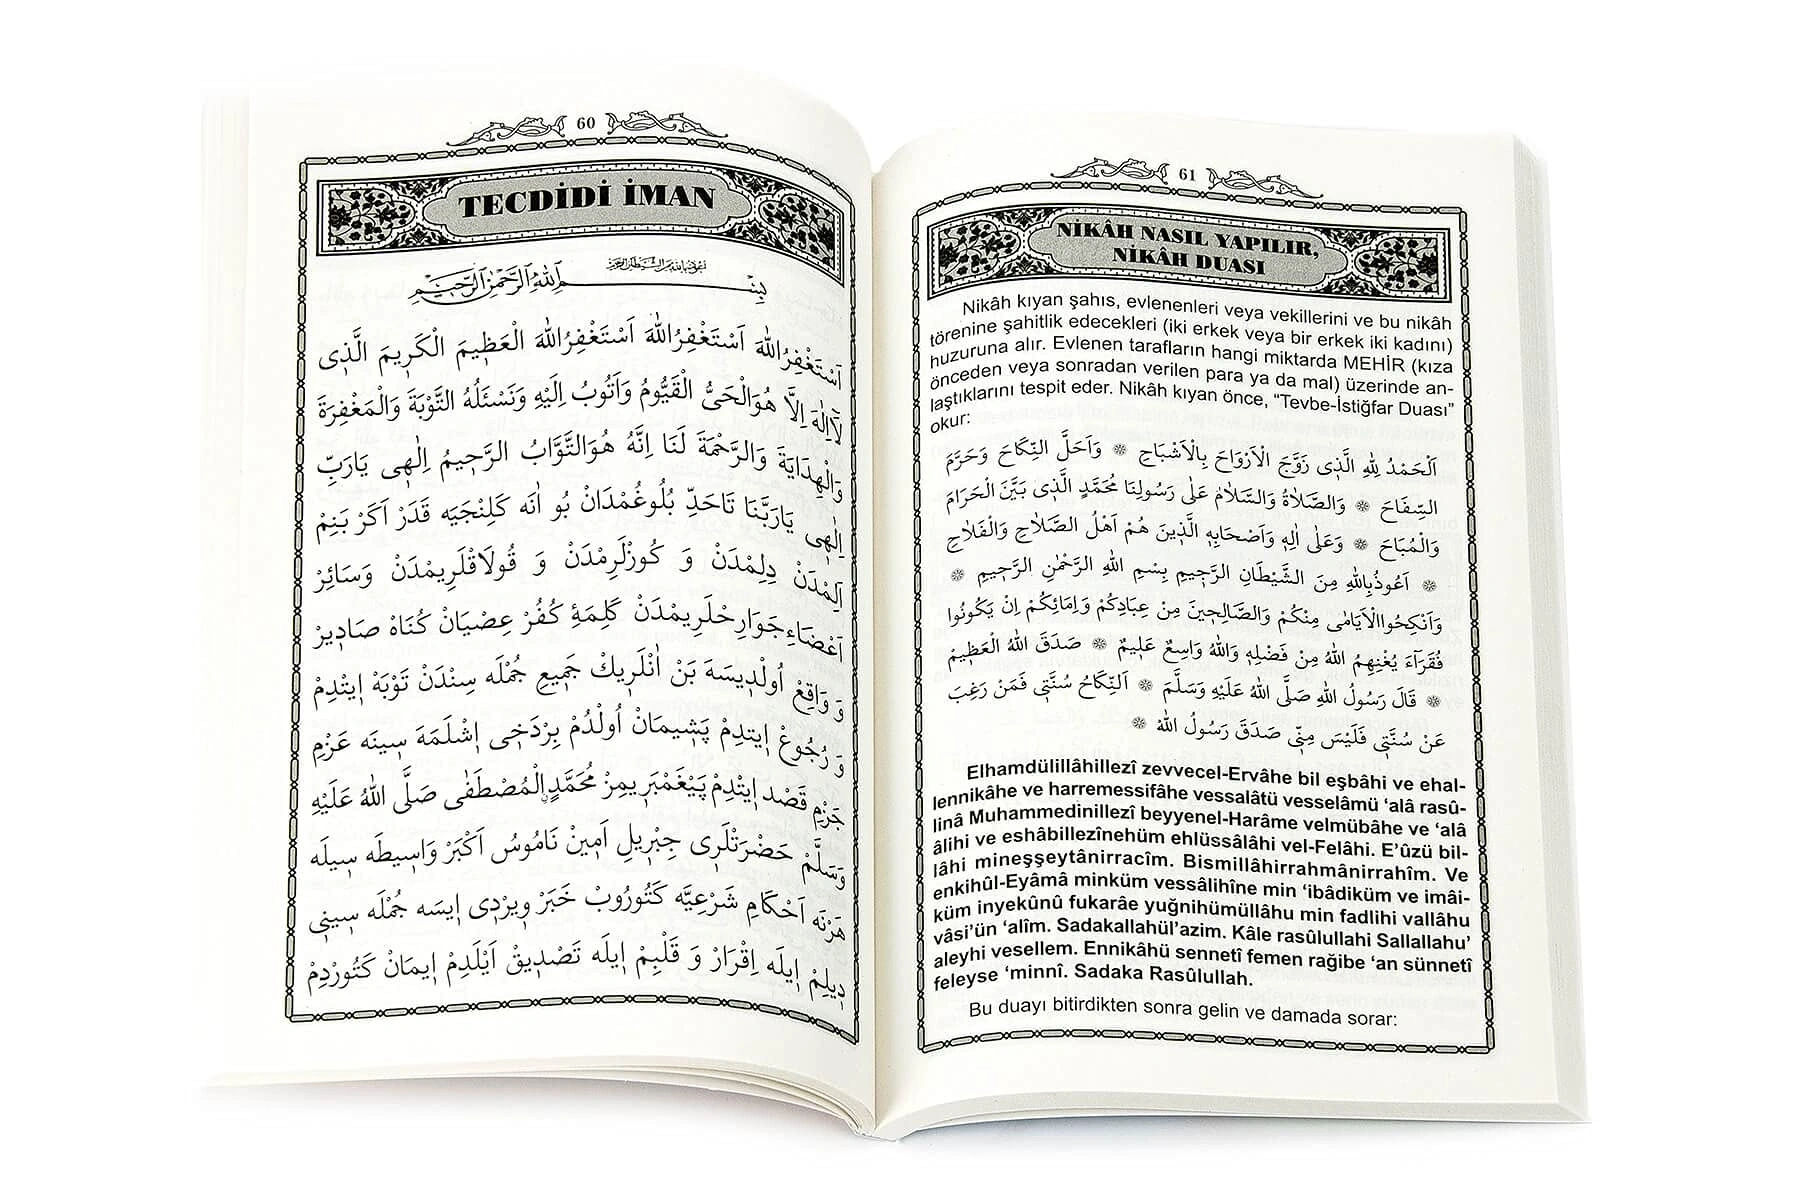 60
TECDİDİ İMAN
اَعُوذُ بِاللهِ مِنَ الشَّيْطَانِ الرَّجِيمِ
بِسْمِ اللهِ الرَّحْمٰنِ الرَّحِيمِ
اَسْتَغْفِرُاللهَ اَسْتَغْفِرُاللهَ اَسْتَغْفِرُاللهَ الْعَظِيمَ الْكَرِيمَ الَّذِي
لَآاِلٰهَ اِلَّا هُوَالْحَيُّ الْقَيُّومُ وَاَتُوبُ اِلَيْهِ وَنَسْئَلُهُ التَّوْبَةَ وَالْمَغْفِرَةَ
وَالْهِدَايَةَ وَالرَّحْمَةَ لَنَا اِنَّهُ هُوَالتَّوَّابُ الرَّحِيمُ اِلٰهِي يَارَبِّ
اِلٰهِي يَارَبَّنَا تَاحَدِّ بُلُوغُمْدَانْ بُو اٰنَه كَلِنْجَيَه قَدَرْ اَكَرْ بَنِمْ
اَلِمْدَنْ دِلِمْدَنْ وَ كُوزْلَرِمْدَنْ وَ قُولَاقْلَرِيمْدَنْ وَسَائِرْ
اَعْضَاءِ جَوَارِحْلَرِيمْدَنْ كَلِمَةِ كُفُرْ عِصْيَانْ كُنَاهْ صَادِيرْ
وَ وَاقِعْ اُولْدِيسَهَ بَنْ اٰنْلَرِيكْ جَمِيعِ جُمْلَه سِنْدَنْ تَوْبَهْ اِيتِدِمْ
وَ رُجُوعْ اِيتِدِمْ پَشِيمَانْ اُولْدُمْ بِرْدَخِي اِشْلَمَهَ سِينَه عَزْمِ
جَزْمِ قَصْد اِيتِدِمْ پَيْغَمْبَرِيمِزْ مُحَمَّدٍ الْمُصْطَفٰى صَلَّى اللهُ عَلَيْهِ
وَسَلَّمْ حَضْرَتْلَرِي جِبْرِيلِ اَمِينْ نَامُوسُ اَكْبَرْ وَاسِيطَه سِيلَه
هَرْنَه اَحْكَامِ شَرْعِيَّه كَتُورُوبْ خَبَرْ وِيرْدِي اِيسَه جُمْلَه سِينِي
دِيلِمْ اِيلَه اِقْرَارْ وَ قَلْبِمْ اِيلَه تَصْدِيقْ اَيْلَدِمْ اِيمَانْ كَتُورْدِمْ
61
NİKÂH NASIL YAPILIR,
NİKÂH DUASI
Nikâh kıyan şahıs, evlenenleri veya vekillerini ve bu nikâh
törenine şahitlik edecekleri (iki erkek veya bir erkek iki kadın)
huzuruna alır. Evlenen tarafların hangi miktarda MEHİR (kıza
önceden veya sonradan verilen para ya da mal) üzerinde an-
laştıklarını tespit eder. Nikâh kıyan önce, “Tevbe-İstiğfar Duası”
okur:
اَلْحَمْدُ لِلهِ الَّذِي زَوَّجَ الْاَرْوَاحَ بِالْاَشْبَاحِ ❁ وَاَحَلَّ النِّكَاحَ وَحَرَّمَ
السِّفَاحَ ❁ وَالصَّلَاةُ وَالسَّلَامُ عَلٰى رَسُولِنَا مُحَمَّدٍ الَّذِي بَيَّنَ الْحَرَامَ
وَالْمُبَاحَ ❁ وَعَلٰى اٰلِهِ وَاَصْحَابِهِ الَّذِينَ هُمْ اَهْلُ الصَّلَاحِ وَالْفَلَاحِ
❁ اَعُوذُبِاللهِ مِنَ الشَّيْطَانِ الرَّجِيمِ بِسْمِ اللهِ الرَّحْمٰنِ الرَّحِيمِ ❁
وَاَنْكِحُواالْاَيَامٰى مِنْكُمْ وَالصَّالِحِينَ مِنْ عِبَادِكُمْ وَاِمَائِكُمْ اِنْ يَكُونُوا
فُقَرَآءَ يُغْنِهِمُ اللهُ مِنْ فَضْلِهِ وَاللهُ وَاسِعٌ عَلِيمٌ ❁ صَدَقَ اللهُ الْعَظِيمْ
❁ قَالَ رَسُولُ اللهِ صَلَّى اللهُ عَلَيْهِ وَسَلَّمَ ❁ اَلنِّكَاحُ سُنَّتِي فَمَنْ رَغِبَ
عَنْ سُنَّتِي فَلَيْسَ مِنِّي صَدَقَ رَسُولُ اللهْ ❁
Elhamdülillâhillezî zevvecel-Ervâhe bil eşbâhi ve ehal-
lennikâhe ve harremessifâhe vessalâtü vesselâmü ‘alâ rasû-
linâ Muhammedinillezî beyyenel-Harâme velmübâhe ve ‘alâ
âlihi ve eshâbillezînehüm ehlüssâlâhi vel-Felâhi. E’ûzü bil-
lâhi mineşşeytânirracîm. Bismillâhirrahmânirrahîm. Ve
enkihûl-Eyâmâ minküm vessâlihîne min ‘ibâdiküm ve imâi-
küm inyekûnû fukarâe yuğnihümüllâhu min fadlihi vallâhu
vâsi’ün ‘alîm. Sadakallahül’azim. Kâle rasûlullahi Sallallahu’
aleyhi vesellem. Ennikâhü sennetî femen rağibe ‘an sünnetî
feleyse ‘minnî. Sadaka Rasûlullah.
Bu duayı bitirdikten sonra gelin ve damada sorar: